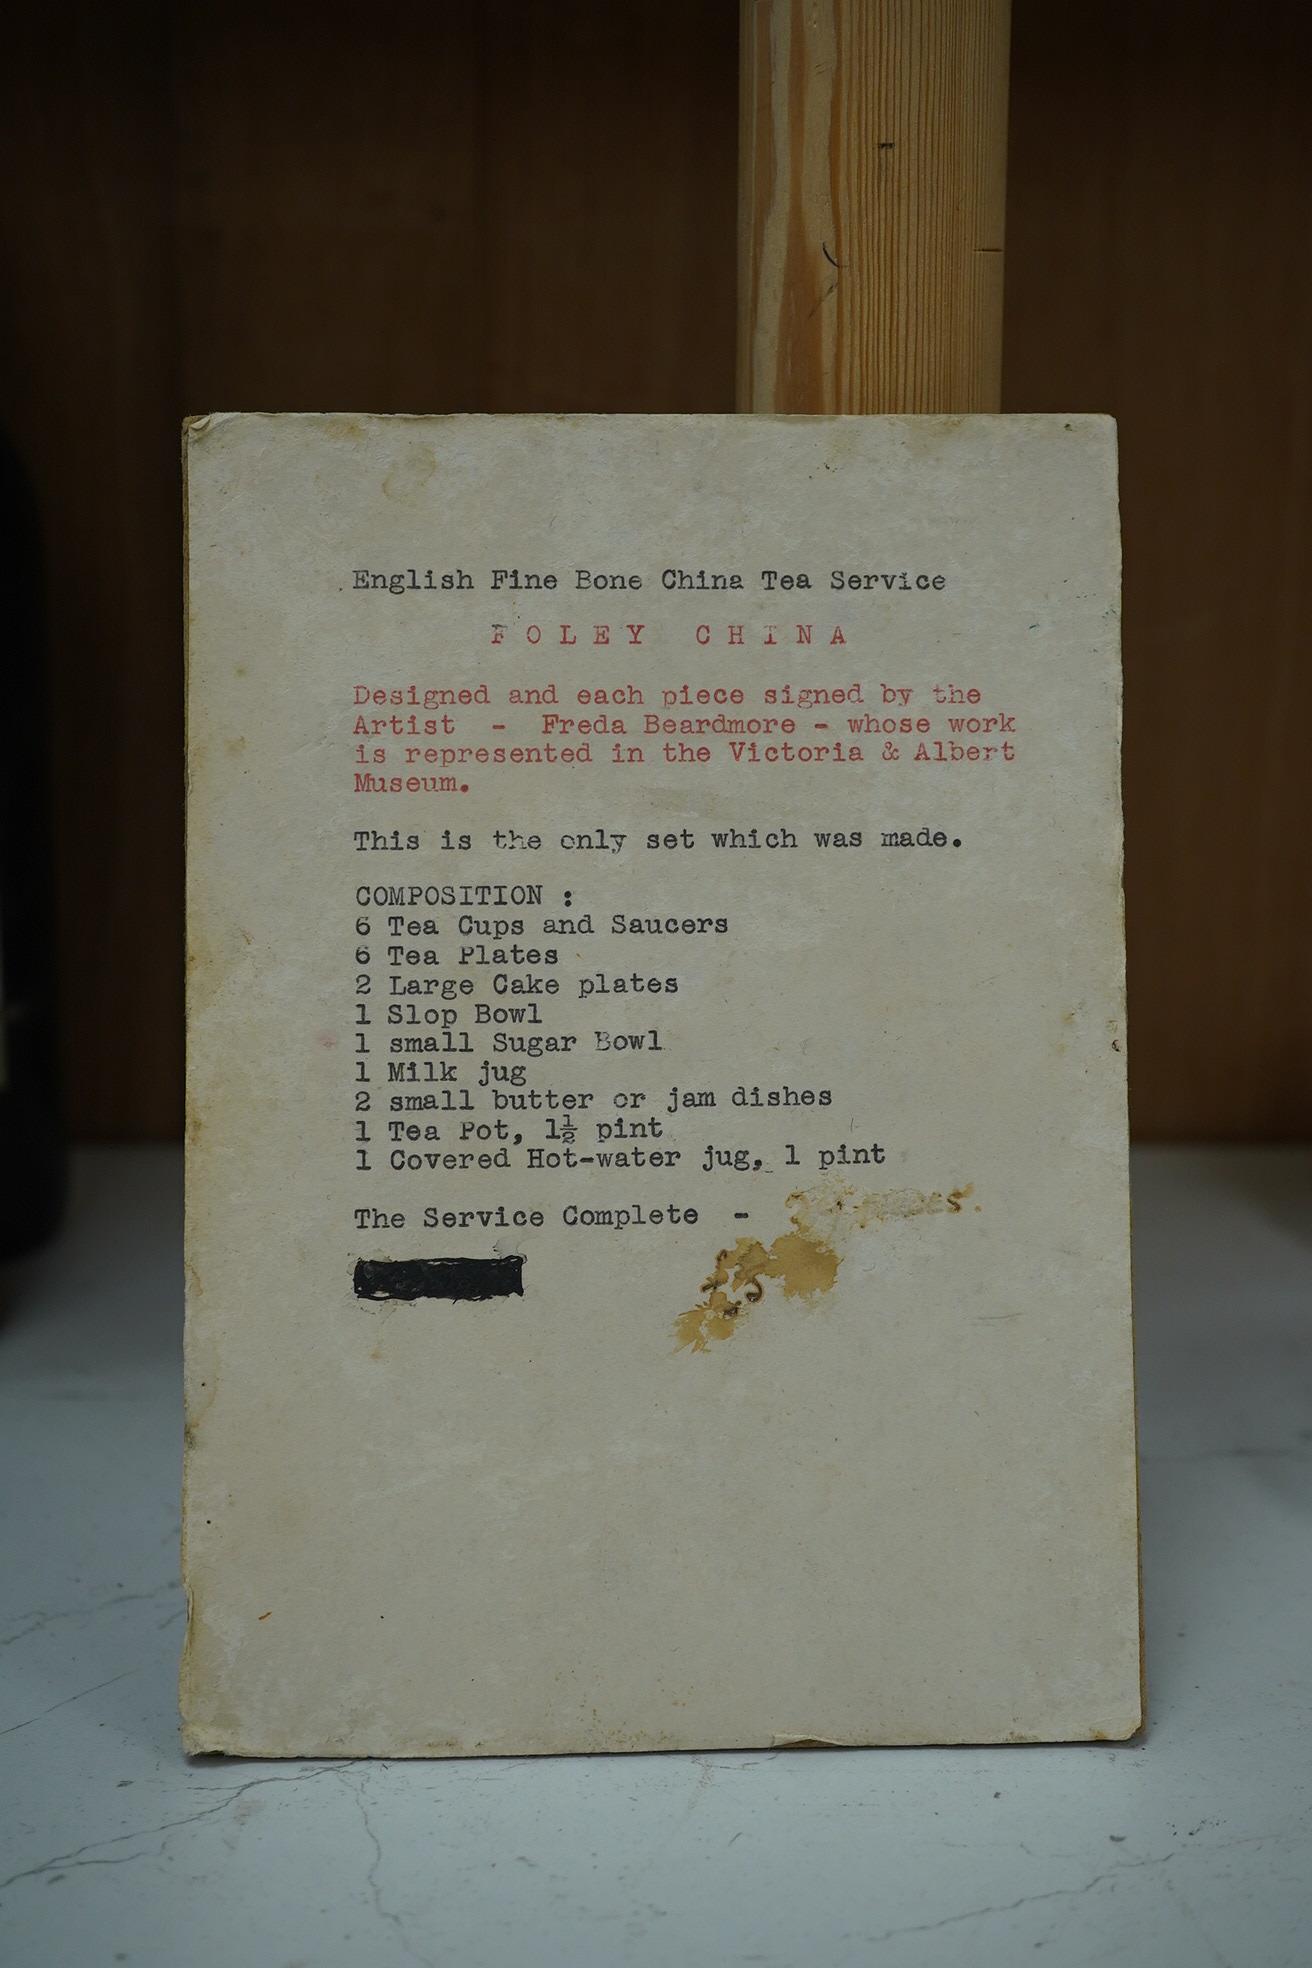 English Fine Bone China Tea Service
FOLEY CHINA
Designed and each piece signed by the
Artist - Freda Beardmore - whose work
is represented in the Victoria & Albert
Museum.
This is the only set which was made.
COMPOSITION :
6 Tea Cups and Saucers
6 Tea Plates
2 Large Cake plates
1 Slop Bowl
1 small Sugar Bowl
1 Milk jug
2 small butter or jam dishes
1 Tea Pot, 1½ pint
1 Covered Hot-water jug, 1 pint
The Service Complete -